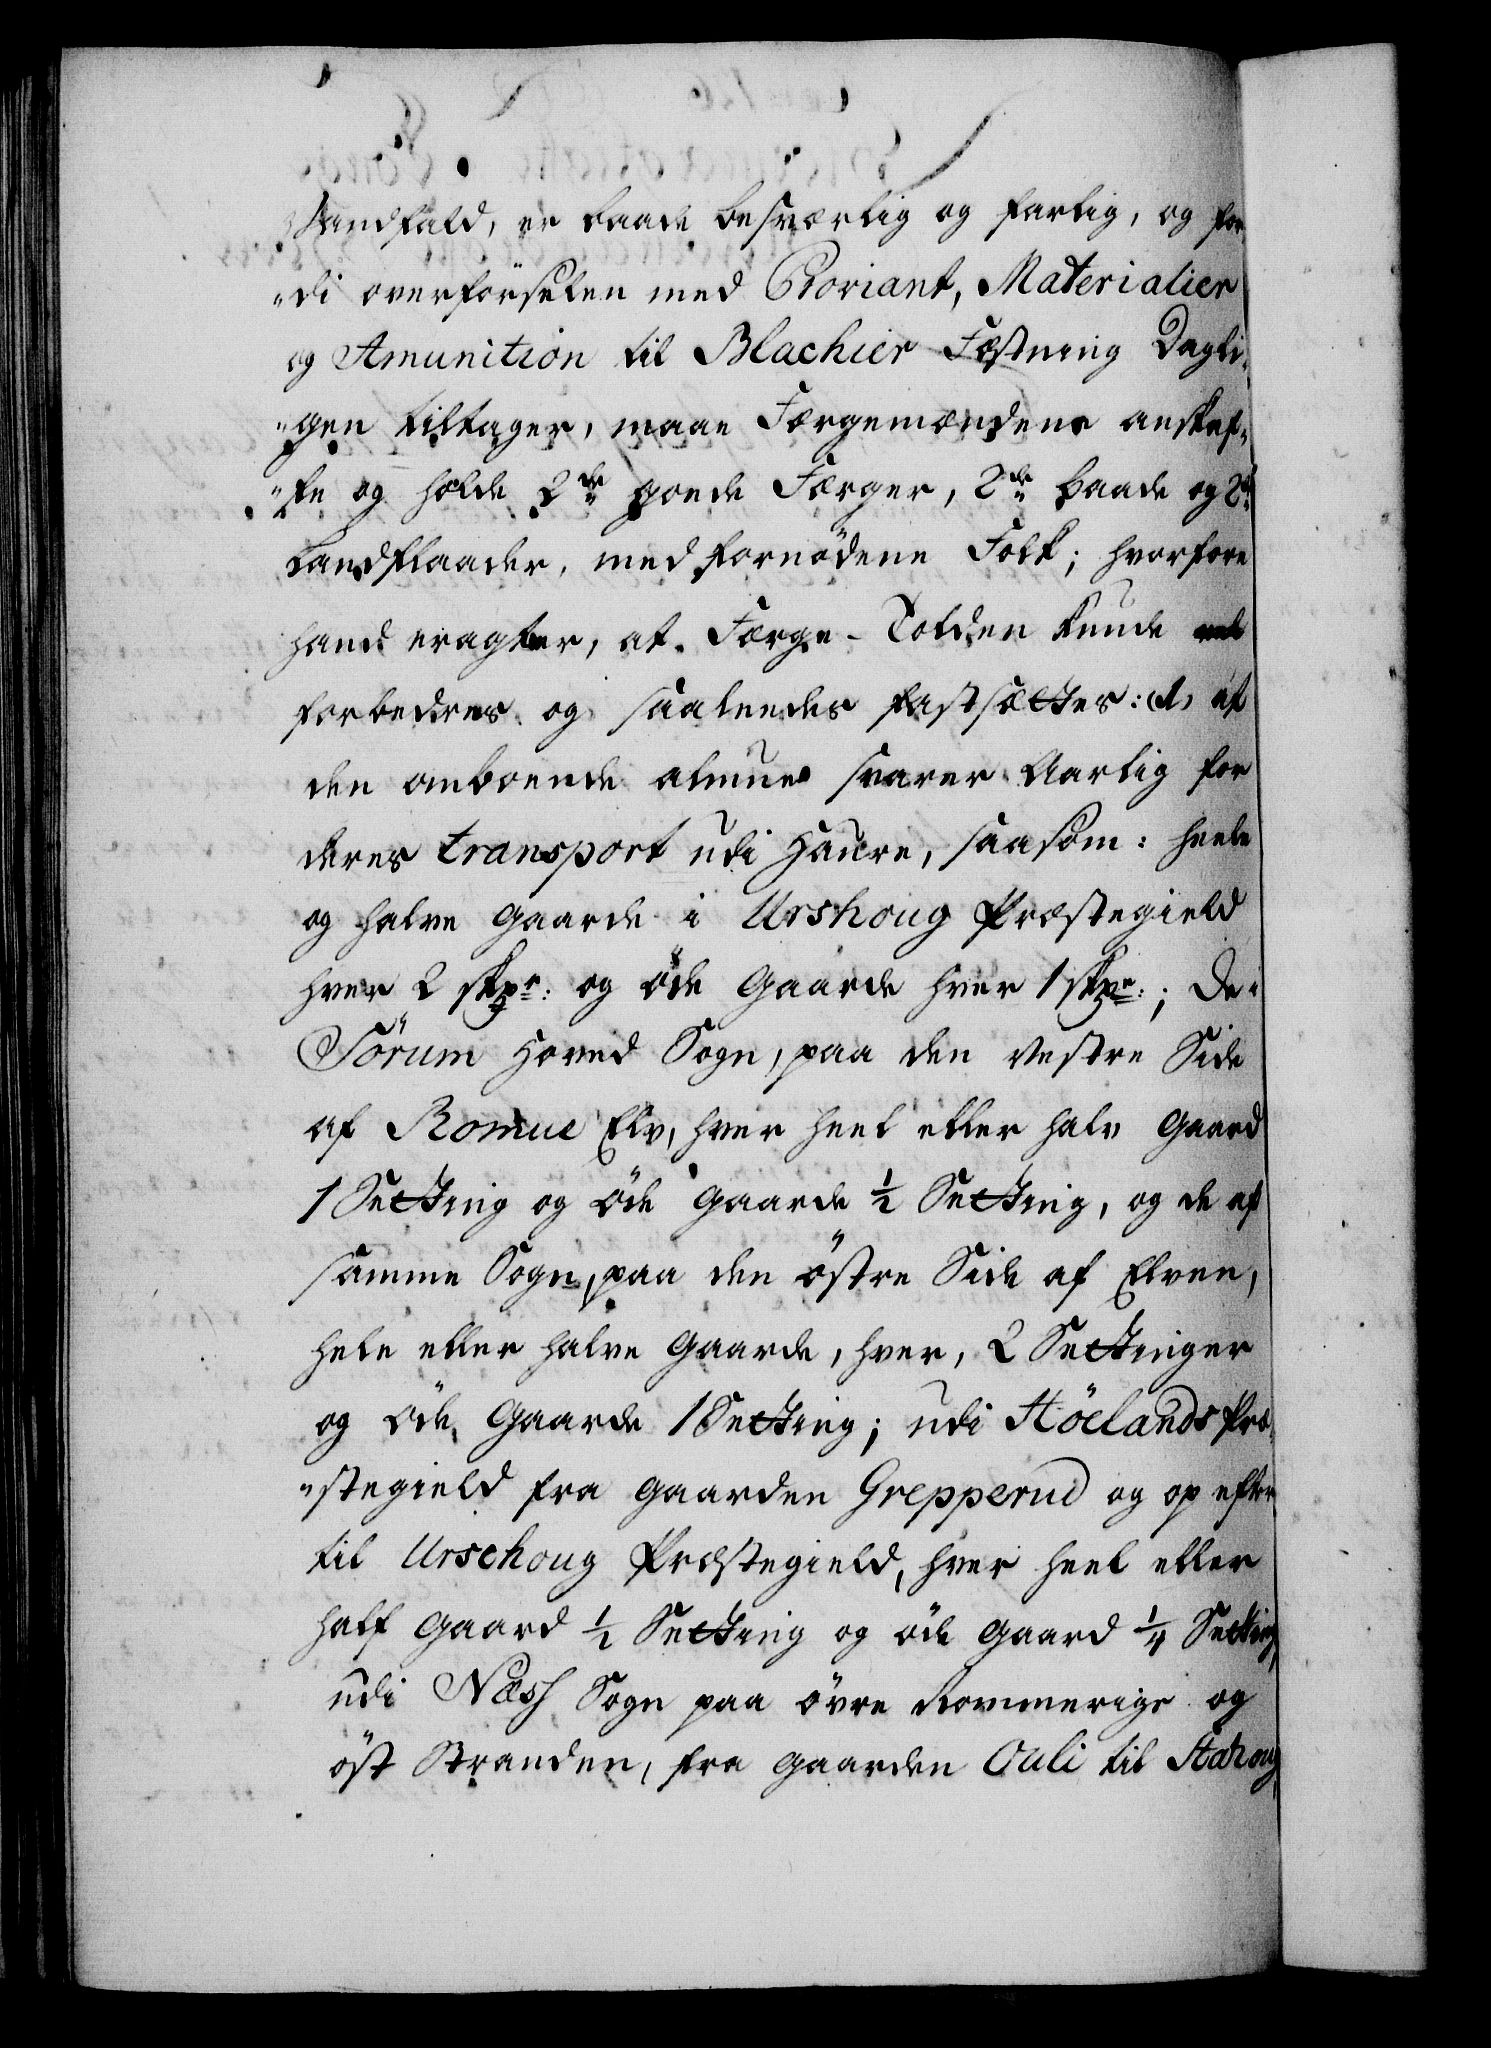 Vandfald, er baade besværlig og farlig, og for
"di overförselen med Proviant, Materialier
og Amunition til Blachier Fæstning Dagli"
"gen tiltager, maae Færgemændene anskaf"
"fe og holde 2de goede Færger, 2de baade og 2de
Landflaader, med fornödene Folk; hvorfore
hand eragter, at Færge-Tolden kunde vel
forbedres og saaleedes fastsættes: (A) af
den omboende almue svarer Aarlig for
deres transport udi Haure, saasom: heele
og halve gaarde i Urshoug Præstegield
hver 2 skpr: og öde Gaarde hver 1 skpr: ; De i
Sörum Hoved Sogn, paa den vestre Side
af Romue Elv, hver heel eller halv Gaard
1 Setting og öde gaarde ½ Setting, og de af
samme Sogn, paa den östre Side af Elven,
hele eller halve Gaarde, hver, 2 Settinger
og öde Gaarde 1 Setting; udi Höelands Præ"
"stegield fra gaarden Grepperud og op efter
til Urschoug Præstegield, hver heel eller
half Gaard ½ Setting og öde gaard ¼ Setting,
udi Næsh Sogn paa övre Rommerige og
öst Stranden, fra gaarden Auli til Hahoug,